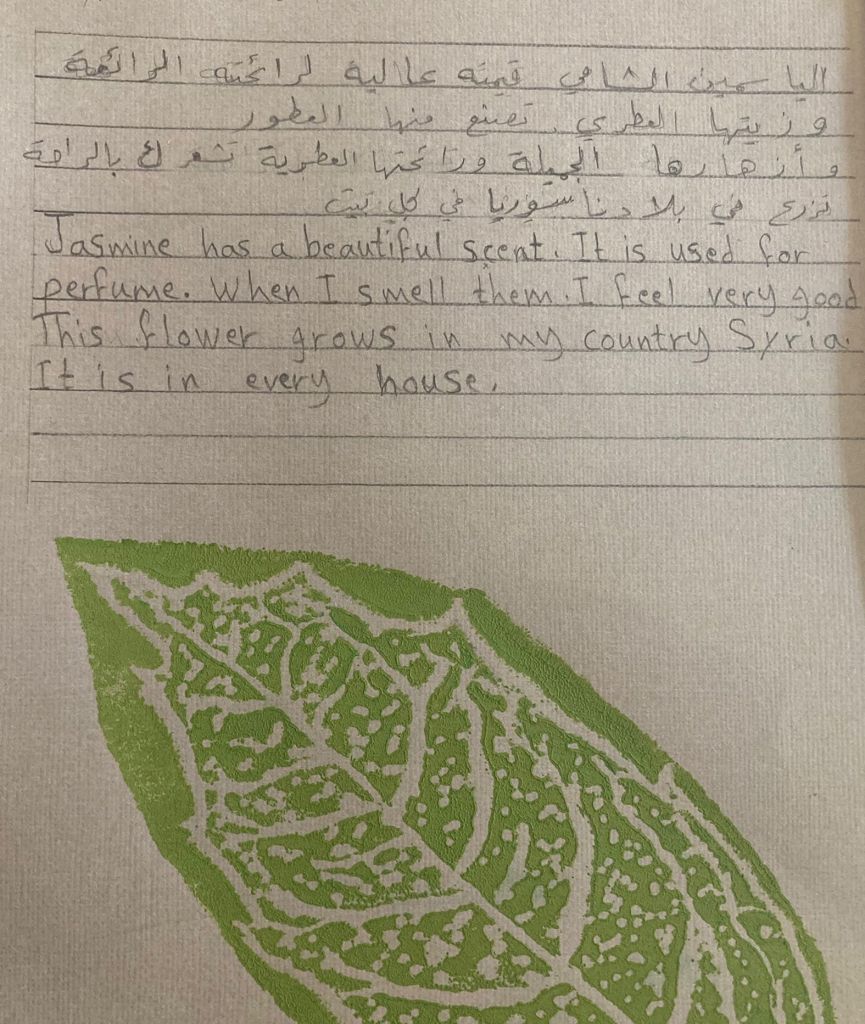 الياسمين الشامي قيمته عالية لرائحته الرائعة
وزيتها العطري. تصنع منها العطور
وأزهارها الجميلة ورائحتها العطرية تشعرك بالراحة
تزرع في بلادنا سوريا في كل بيت
Jasmine has a beautiful scent. It is used for
perfume. When I smell them. I feel very good
This flower grows in my country Syria.
It is in every house.